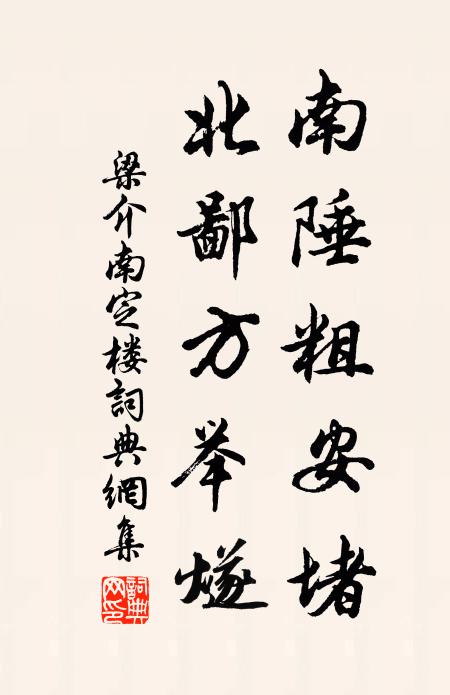 南陲粗安堵
北鄙方举燧
梁介南定楼詞典網集
詞典网印